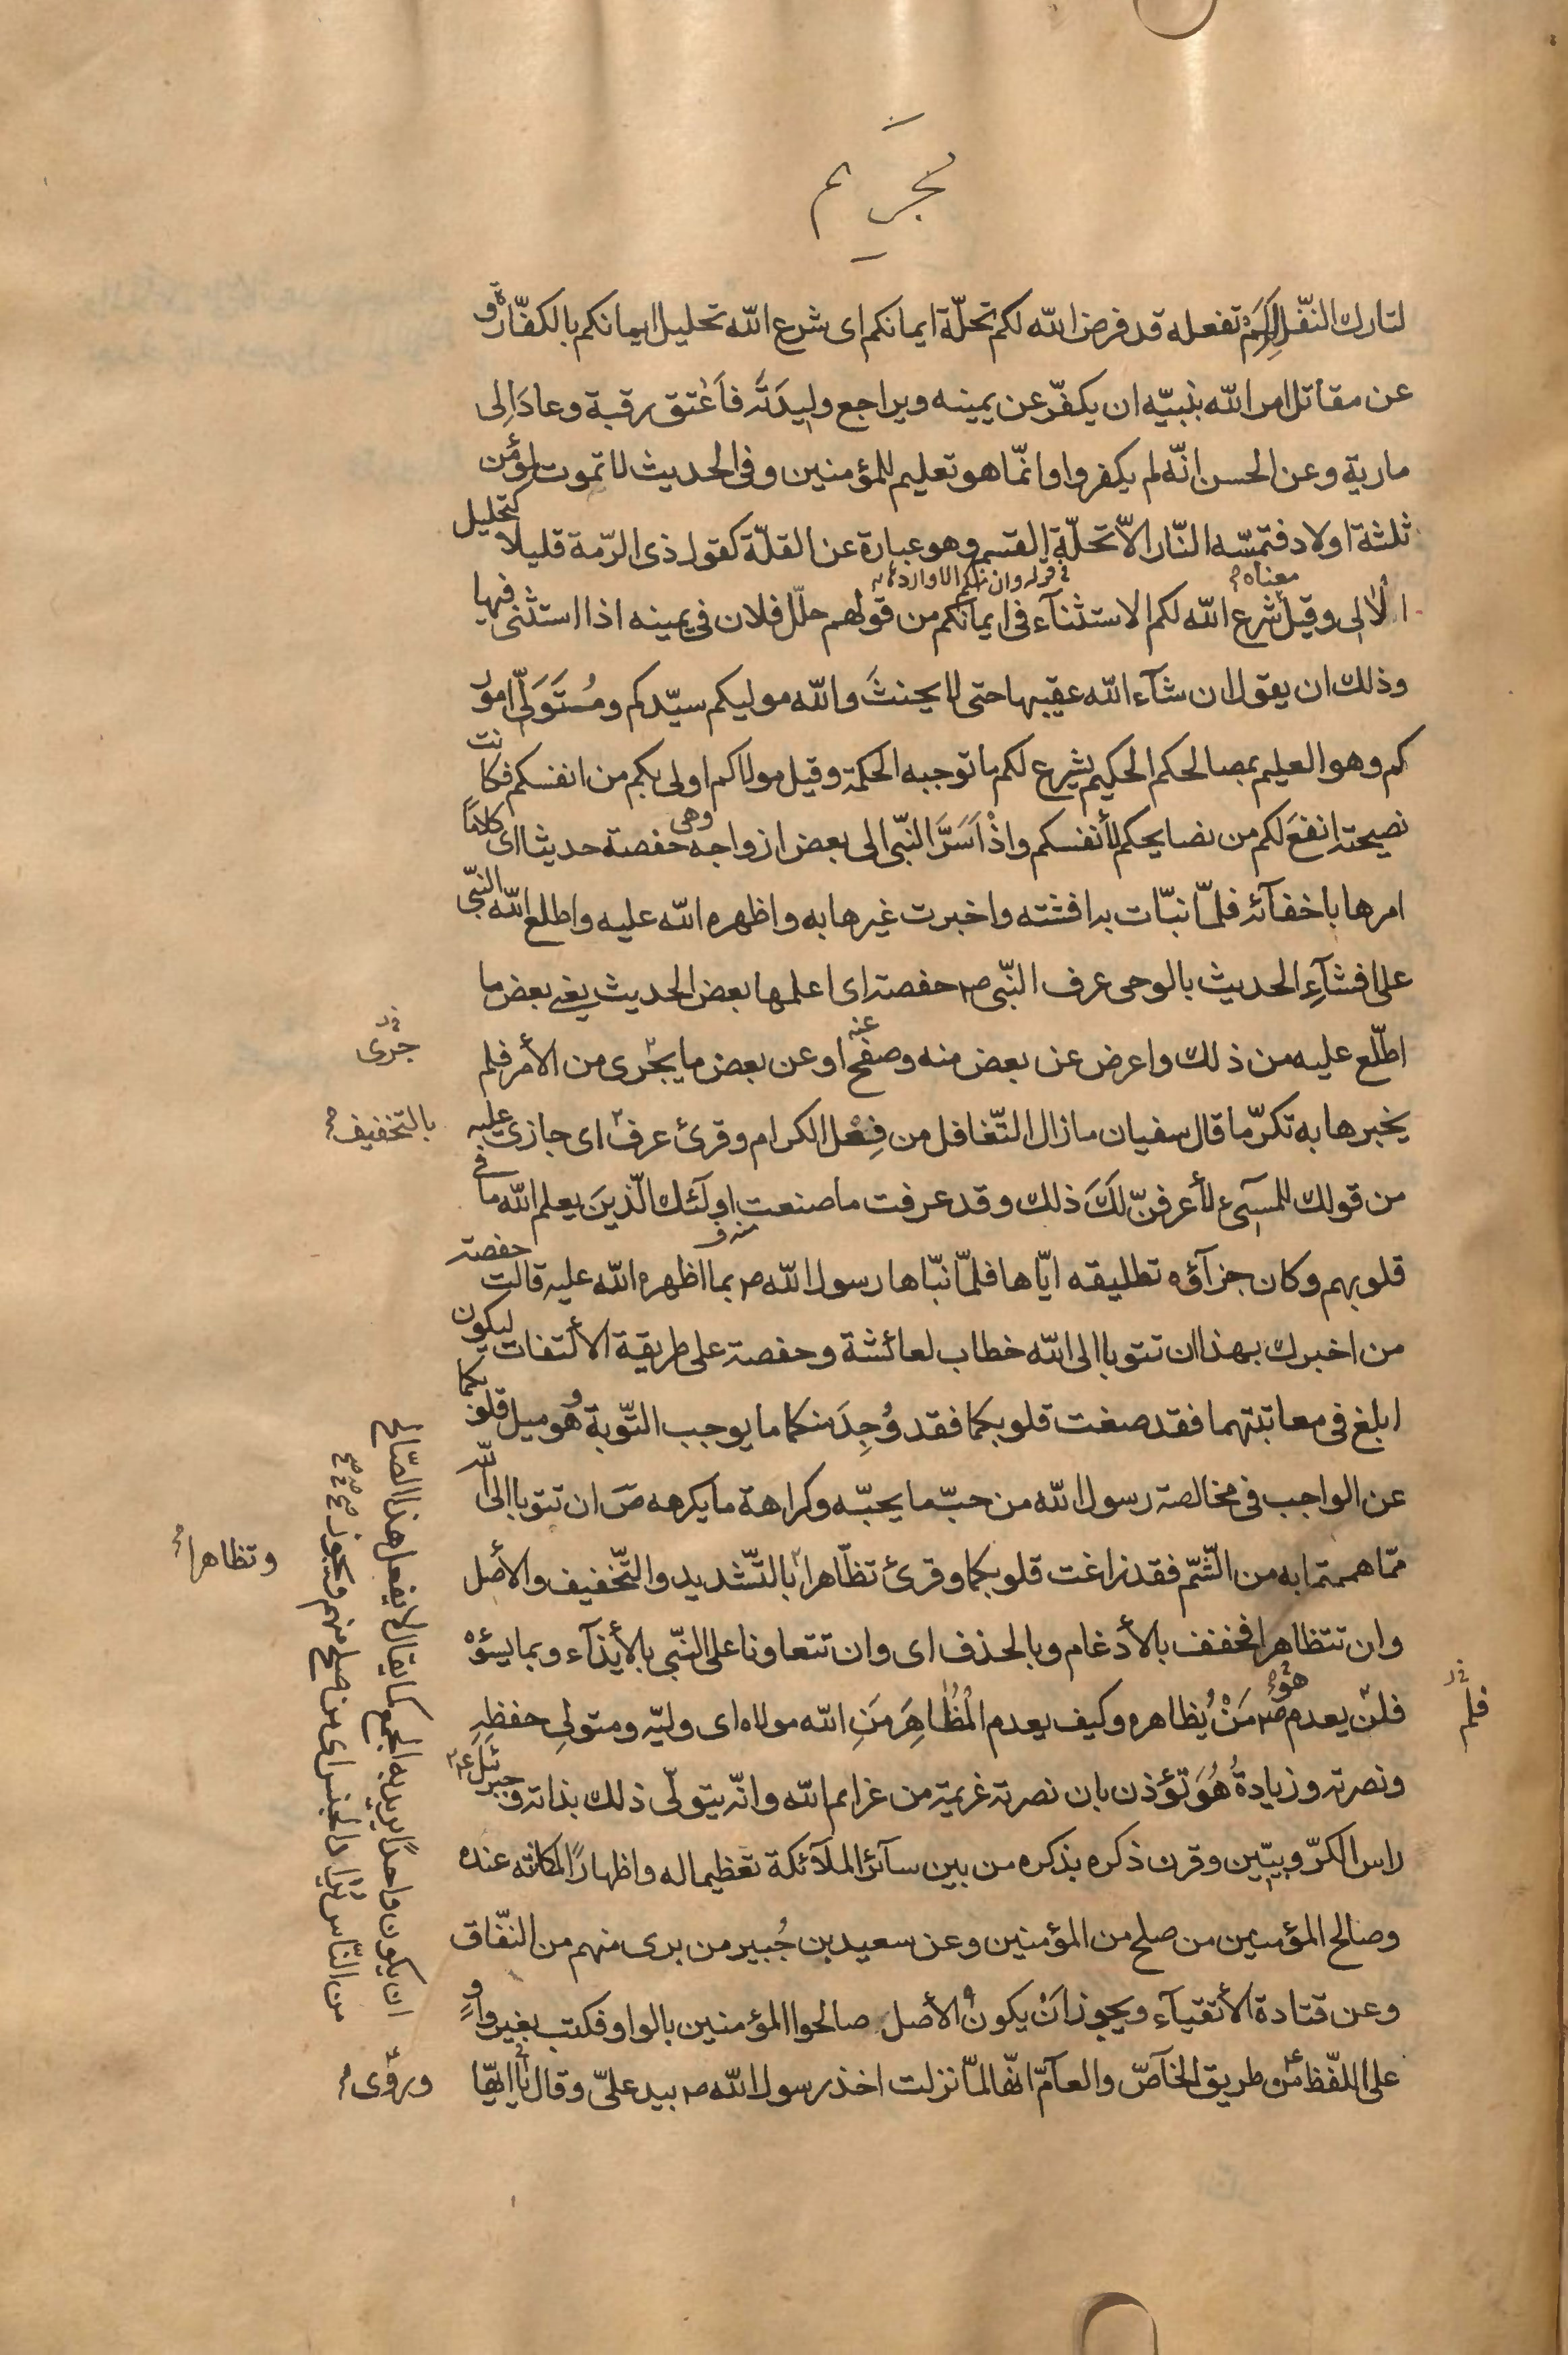 تحريم
لتارك النفل لِمَ لَمْ تفعله قد فرض الله لكم تحلّة ايمانكم اى شرع الله تحليل ايمانكم بالكفّارة و
عن مقاتل امر الله بنبيّه ان يكفّر عن يمينه ويراجع وليدَتَه فاَعْتق رقبة وعادَ اِلى
مارية وعن الحسن انّه لم يكفر واوانّما هو تعليم للمؤمنين وفى الحديث لا تموت لمؤمن
ثلثة اولاد فتمسّه النّار الاّ تحلّة القسم وهو عبارة عن القلّة كقول ذى الرّمة قليلا كتحليل
الأُلى وقيل معناه شرع الله لكم الاستثنآء فى ايمانكم من قولهم حلّل فلان فى يمينه اذا استثنى فيها
فى قوله وان منكم الا واردها
وذلك ان يقول ان شآء الله عقيبها حتى لا يحنثَ والله موليكم سيّدكم ومُتَوَلّى امور
كم وهو العليم بمصالحكم الحكيم يشرع لكم ما توجبه الحكمة وقيل مولاكم اولى بكم من انفسكم فكانت
نصيحته انفعَ لكم من نصايحكم لأنفسكم واذْ اَسَرَّ النبّى الى بعض ازواجه وهى حفصة حديثا اى كلامًا
امرها باخفآئه فلمّا نبّات به افشته واخبرت غيرها به واظهره الله عليه واطلع الله النبّى
على افشآءِ الحديث بالوحى عرف النبّى ص حفصة اى اعلمها بعض الحديث يعنى بعض ما
اطّلع عليه من ذلك واعرض عن بعض منه وصفح عنه او عن بعض ما يجرى من الأمر فلم
جرى
يخبرها به تكرّما قال سفيان مازال التّغافل من فِعْل الكرام وقرئ عرف اى جازى عليه
بالتخفيف
من قولك للمسىء لأعرفنّ لَكَ ذلك وقد عرفت ما صنعت منه و اولَئك الّذينَ يعلم الله ما فى
قلوبهم وكان جزآؤه تطليقه ايّاها فلمّا نبّاها رسول الله ص بما اظهره الله عليه قالت حفصة
من اخبرك بهذا ان تتوبا الى الله خطاب لعائشة وحفصة على طريقة الألتفات ليكون
ابلغ فى معاتبتهما فقد صغت قلوبكما فقد وُجِدَ منكما ما يوجب التّوبة وهو ميل قلوبكما
عن الواجب فى مخالصة رسول الله من حبّ ما يحبّه وكراهة ما يكرهه ص ان تتوبا الى الله
ممّا هممتما به من السّمّ فقد زاغت قلوبكما وقرئ تظّاهرا بالتّشديد والتّخفيف والأصل
وتظاهرا
وان تتظاهرا فخفف بالأدغام وبالحذف اى وان تتعاونا على النبّى بالأيذآء وبما يسؤه
فلن يعدم هو ص مَنْ يُظاهره وكيف يعدم الْمُظَاهِرَ مَنِ الله مولاه اى وليّه ومتولى حفظِهِ
فلم
ونصرته وزيادةُ هُوَ تؤذن بان نصرته عزيمة من عزايم الله وانّه يتولّى ذلك بذاته وجبرئل ع
راس الكرّوبيّين وقرن ذكره بذكره من بين سآئر الملآئكة تعظيما له واظهارًا لمكانته عنده
وصالح المؤمنين من صلح من المؤمنين وعن سعيد بن جُبير من برى منهم من النفّاق
وعن قتادة الأتقيآء ويجوز اَنْ يكون الأصل صالحوا المؤمنين بالواو فكتب بغير واوٍ
على اللّفظ عن طريق الخآصّ والعآمّ انّها لمّا نزلت اخذ رسول الله ص بيد علىّ وقال يا ايّها
وروى
ان يكون واحدًا يريد به الجمع كما يقال لا يفعل هذا الصّالح
من النّاس تريد الجنس اى من صلح منهم ويجوز